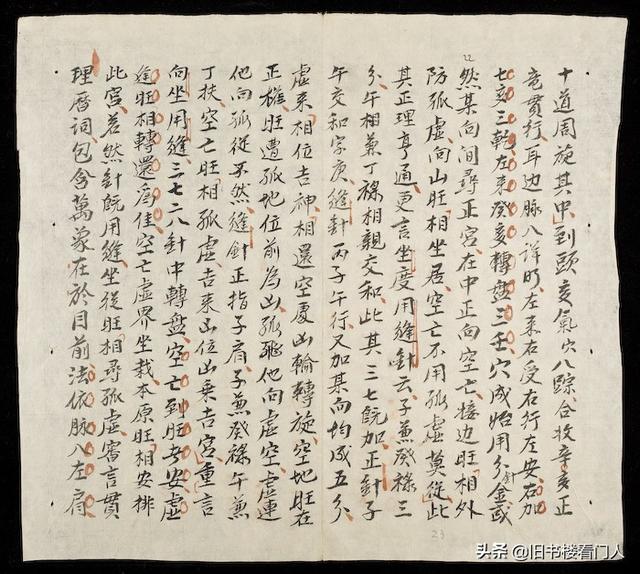 十道周旋其中到頭亥氣穴八踪合收辛亥正
竟貫行耳边脉八詳明左来右受右行左安右加
七亥三乾左来癸亥轉盘三壬穴成始用分金或
22
然某向间尋正宫在中正向空亡接边旺相外
防孤虚向山旺相坐居空亡不用孤虚莫從此
其正理亨通更言坐度用縫針云子兼癸祿三
分午相兼丁祿相親交和此其三七既加正針子
午交和字庚縫針丙子午行又加某向均成五分
虚来相位吉神相還空憂山輪轉旋空地旺在
正權旺遭孤地位前為山孤飛他向虚空虚連
他向孤從不然縫針正指子肩子兼癸祿午兼
丁扶空亡旺相孤虚吉来山位山乗吉宫重言
向坐用縫三七二八針中轉盘空亡到旺吞安虚
逢旺相轉還為佳空亡虚界坐栽本原旺相安排
此宫若然針既用縫坐從旺相尋孤虚審言貫
理唇词包含萬象在於目前法依脉八左肩
23
头条 @旧书楼看门人